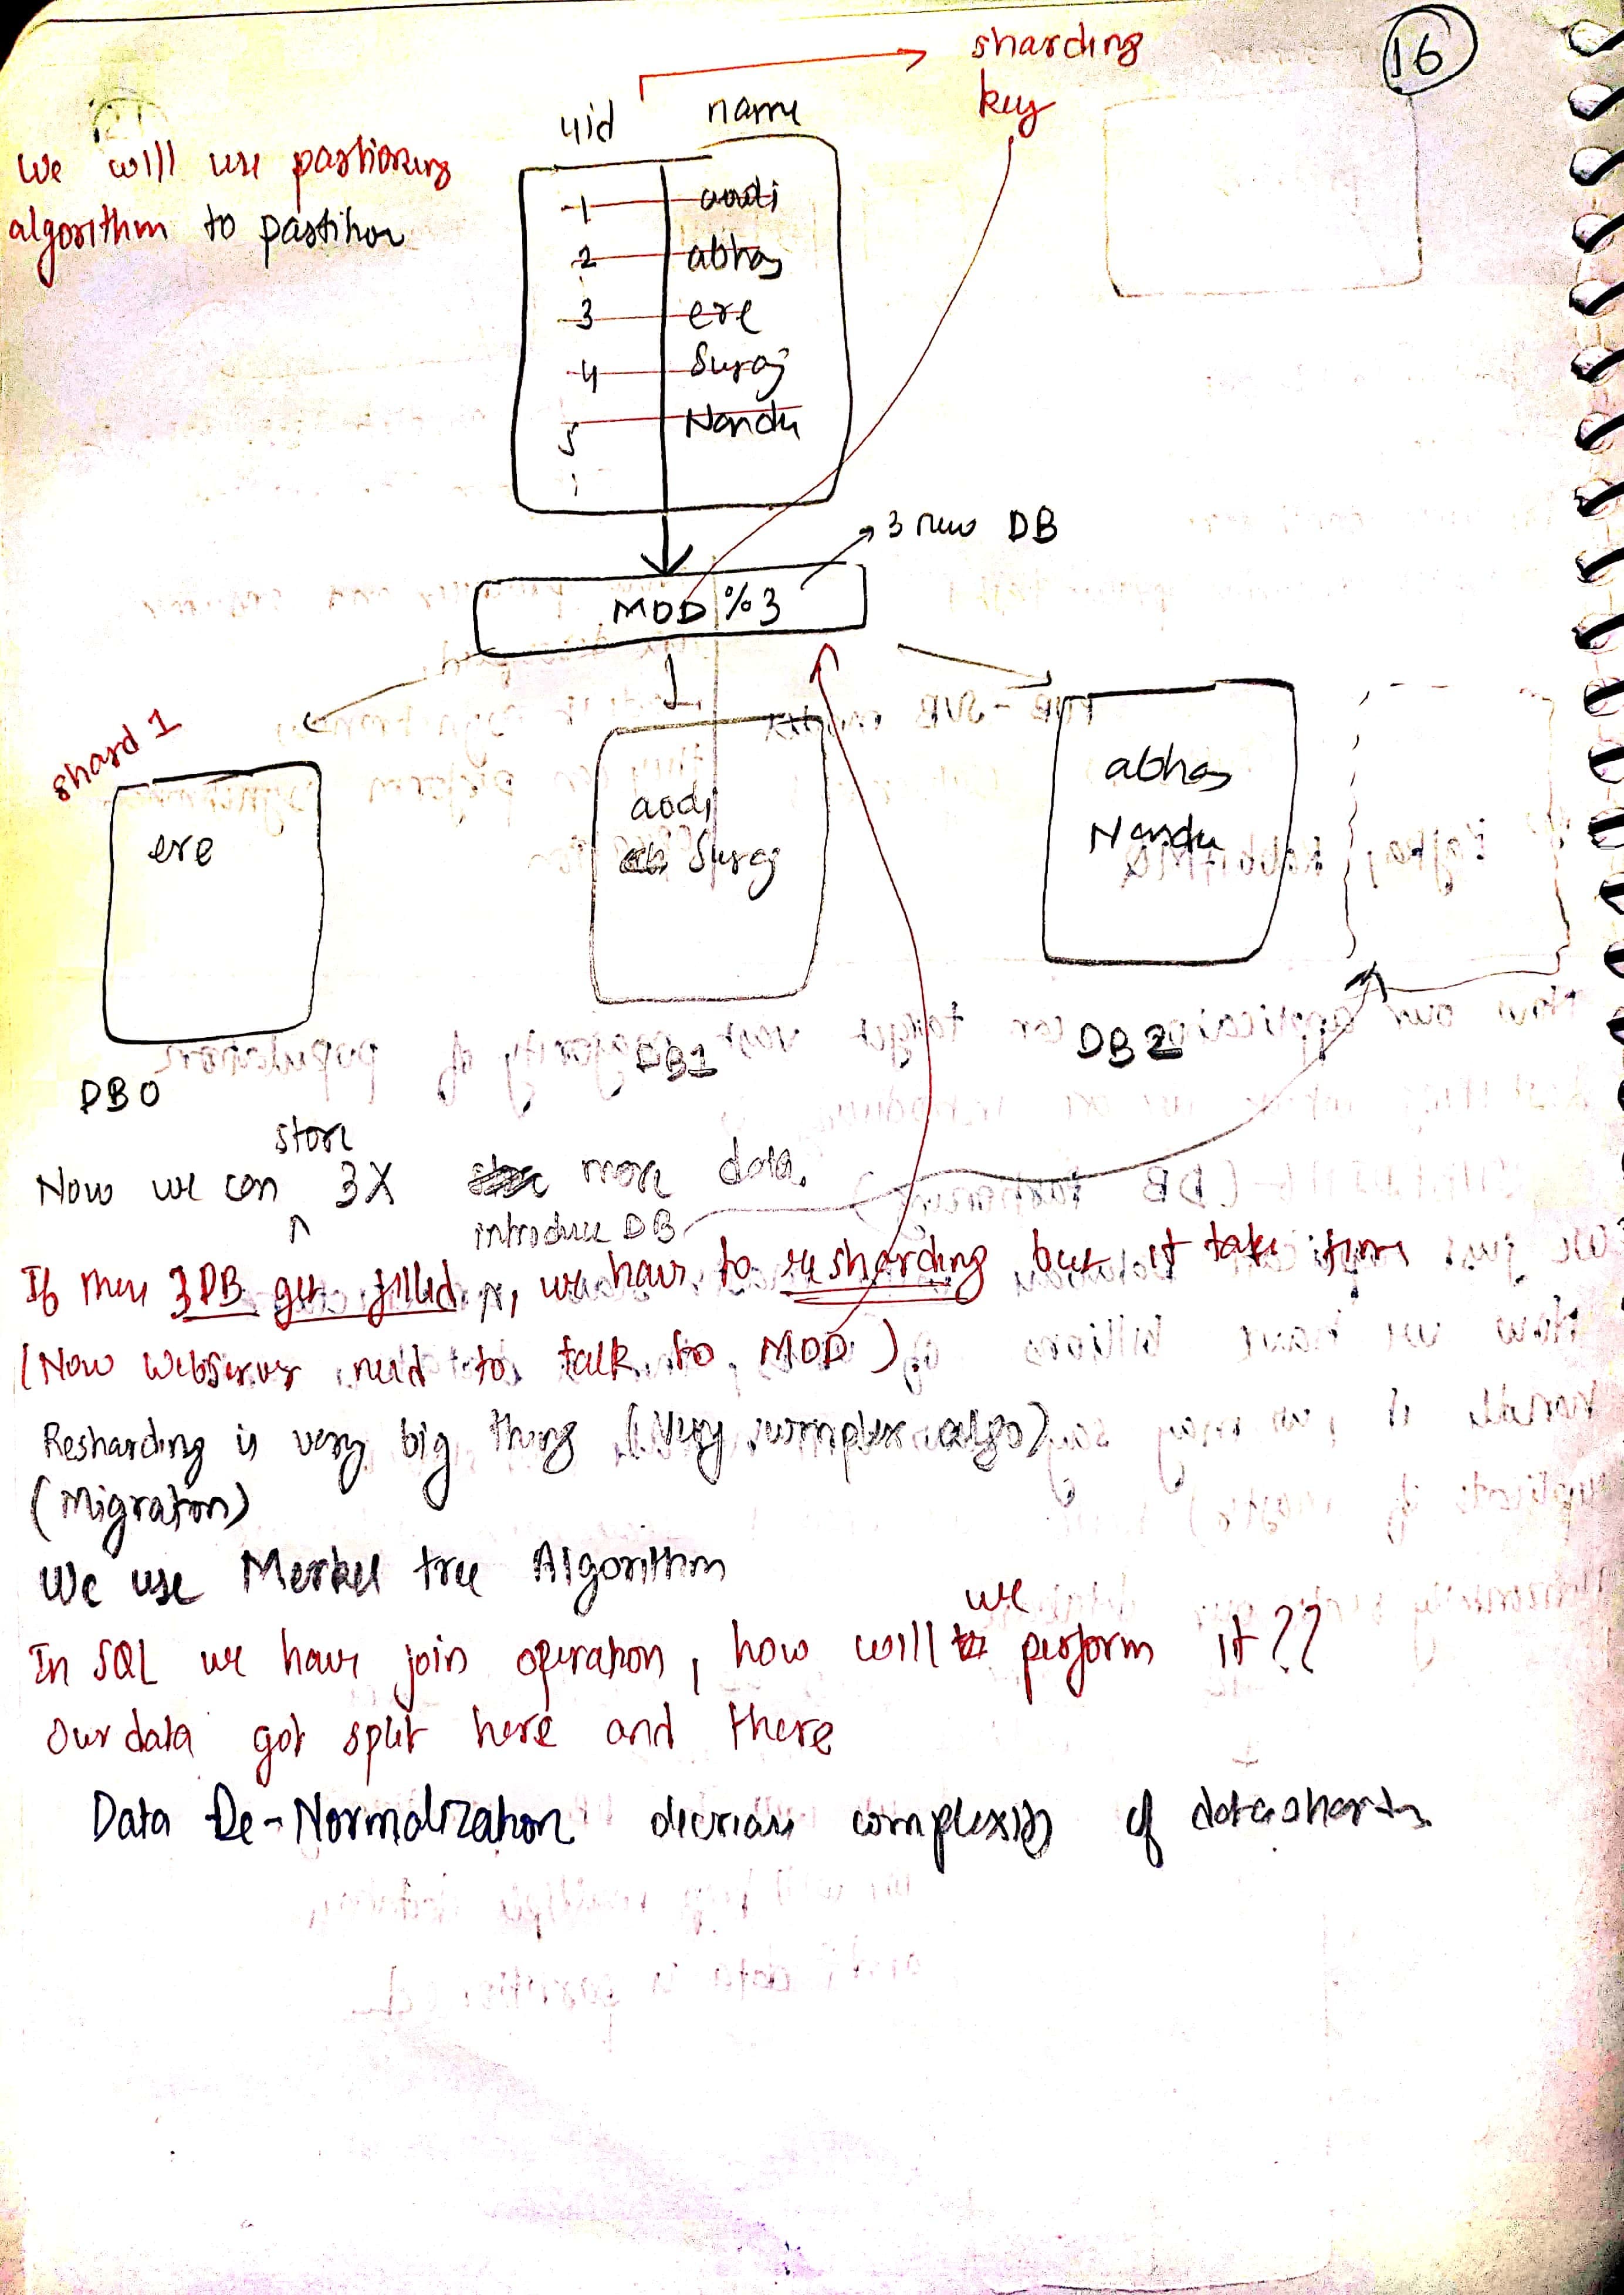 16
sharding
key
uid name
We will use partioning
algorithm to partition
1 aadi
2 abhay
3 ere
4 Suraj
5 Nandu
3 new DB
MOD % 3
shard 1
ere
aadi
Suraj
abhay
Nandu
DB 0
DB1
DB 2
store
Now we can 3X more data.
introduce DB
If then 3 DB get filled, we have to resharding but it take time
(Now Webserver need to talk to MOD)
Resharding is very big thing (Very complex algo)
(Migration)
We use Merkel tree Algorithm
In SQL we have join operation, how will we perform it??
Our data got split here and there
Data De-Normalization decrease complexity of data shards